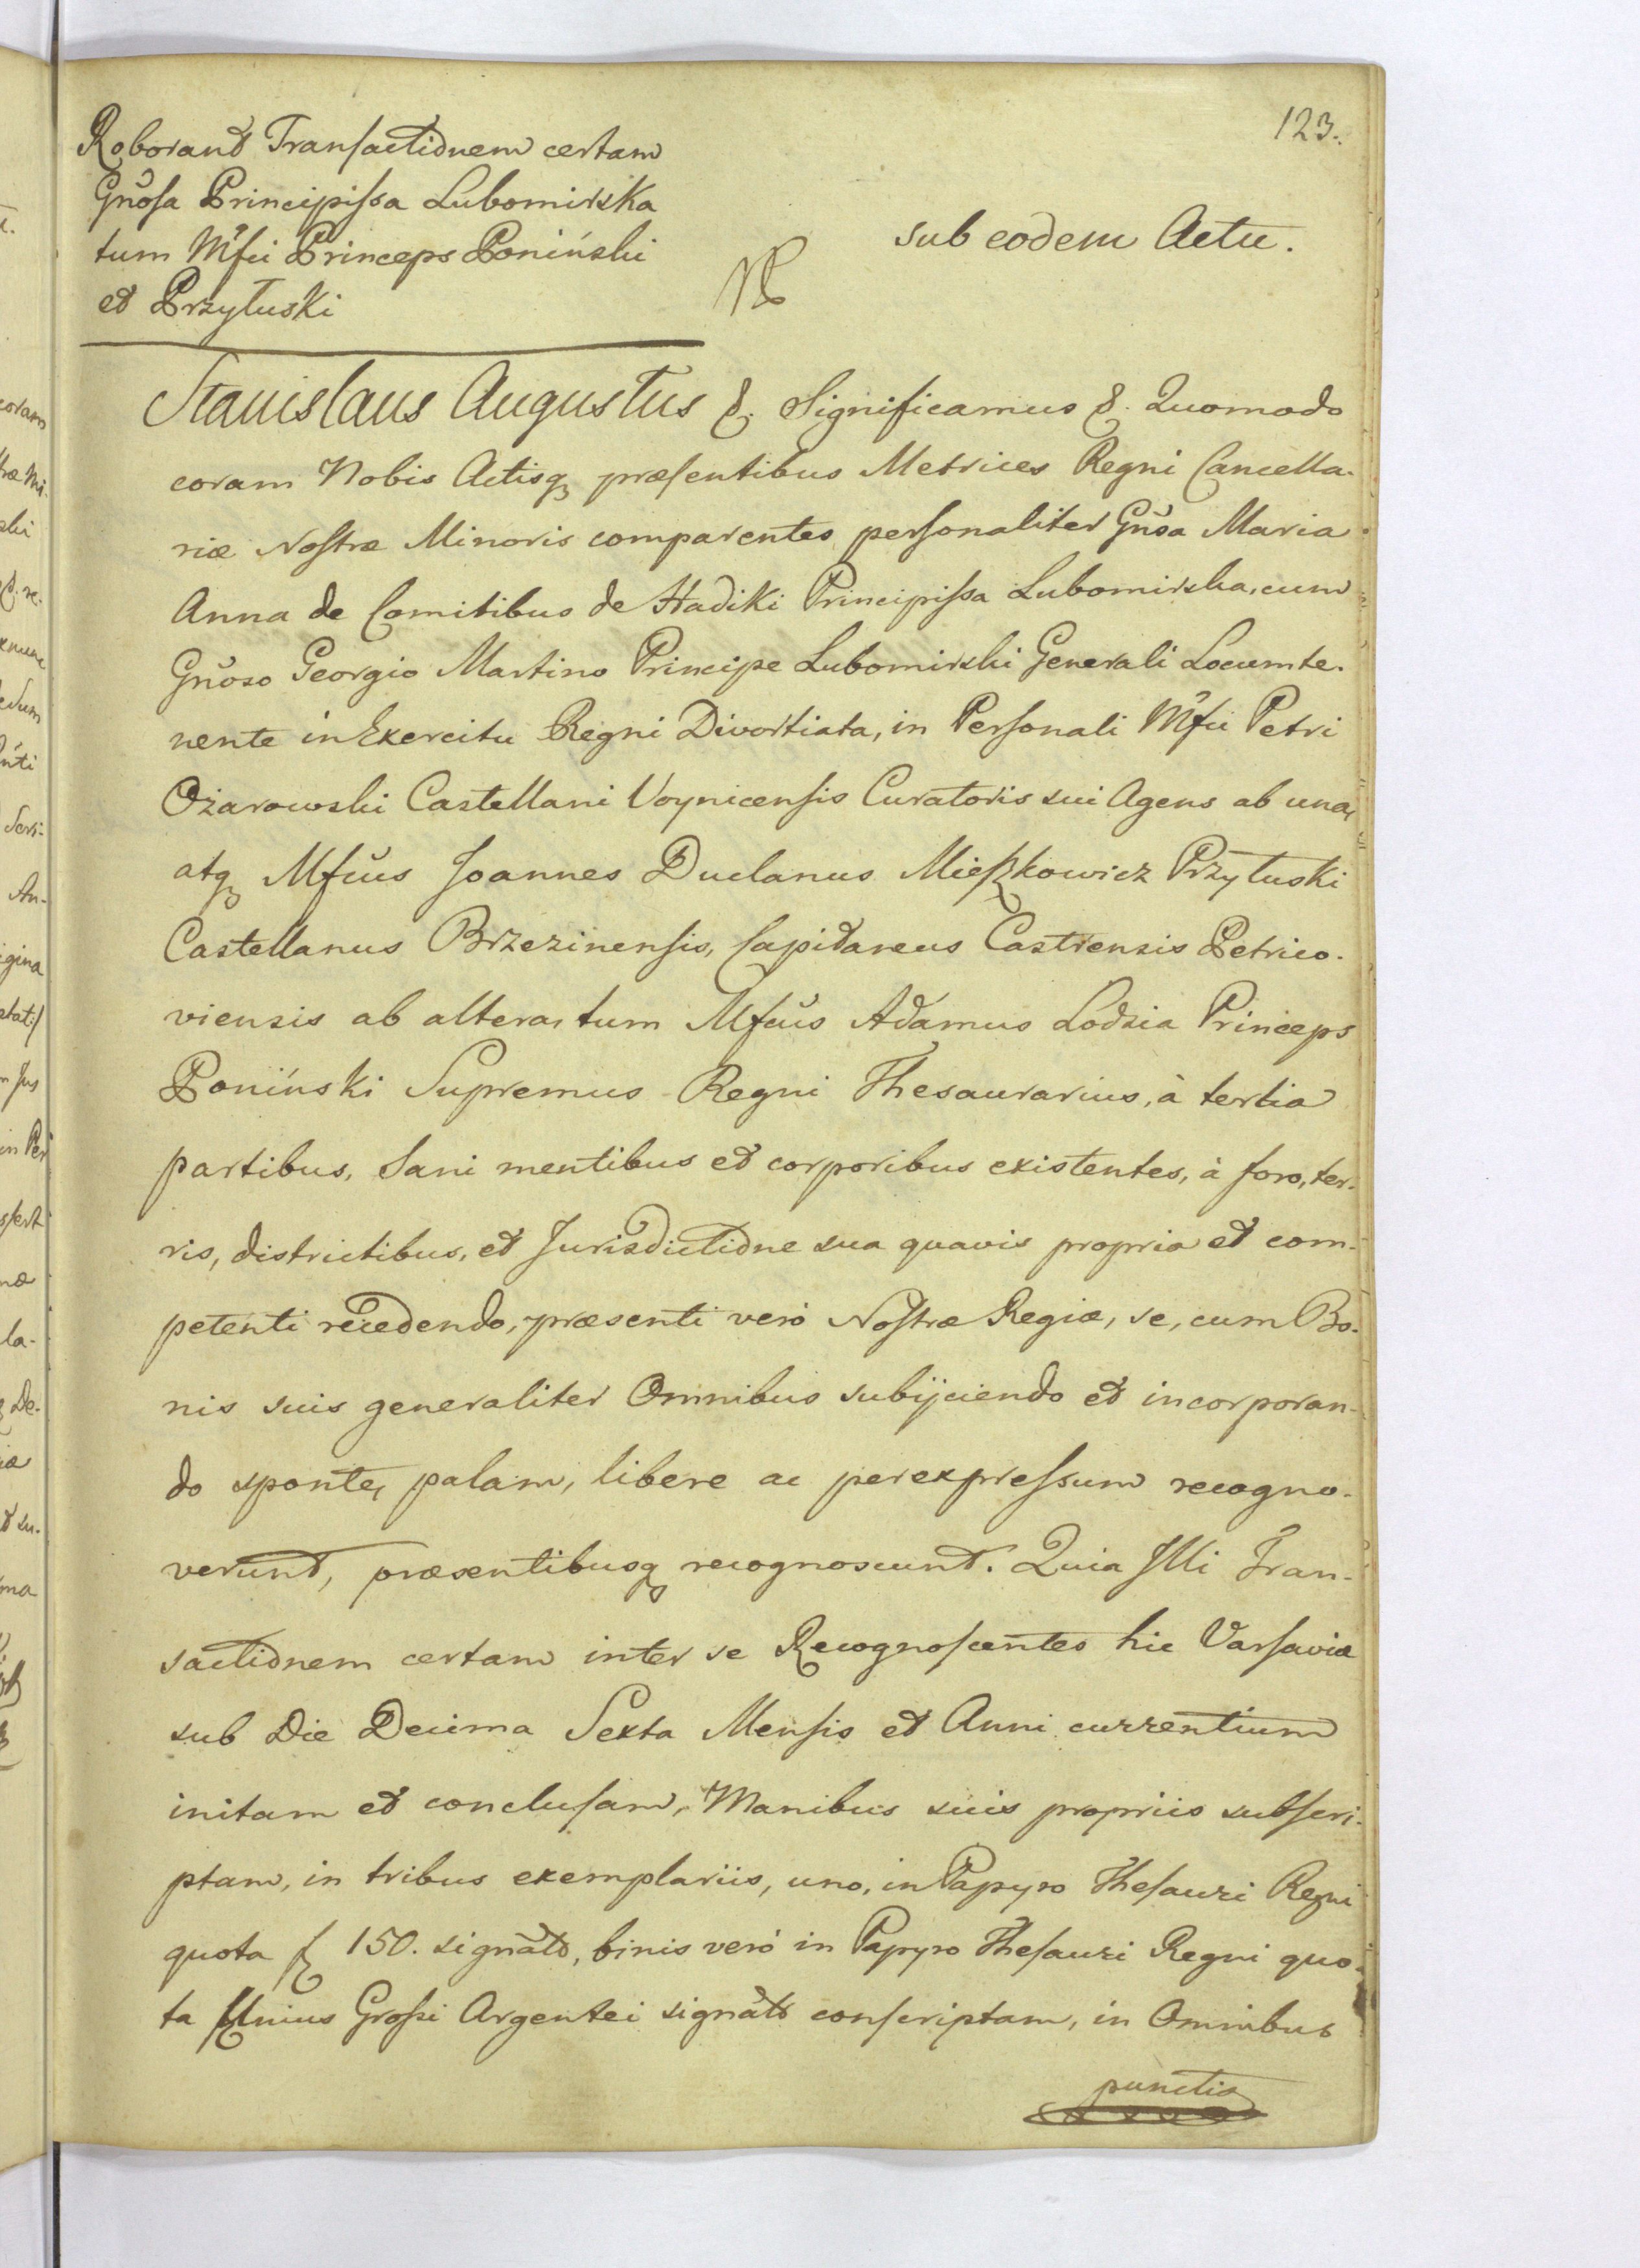 123.
Roborant Transactionem certam
Gnosa Principissa Lubomirska
tum Mfci Princeps Poniński
et Przyłuski
sub eodem Actu.
Stanislaus Augustus &. Significamus &. Quomodo
coram Nobis Actisq præsentibus Metrices Regni Cancella-
riæ Nostræ Minoris comparentes personaliter Gnosa Maria
Anna de Comitibus de Hadiki Principissa Lubomirska, cum
Gnoso Georgio Martino Principe Lubomirski Generali Locumte-
nente in Exercitu Regni Divortiata, in Personali Mfci Petri
Ożarowski Castellani Voynicensis Curatoris sui Agens ab una,
atq Mfcus Joannes Duclanus Mieszkowicz Przyłuski
Castellanus Brzezinensis, Capitaneus Castrensis Petrico-
viensis ab altera, tum Mfcus Adamus Lodzia Princeps
Poniński Supremus Regni Thesaurarius, à tertia
partibus, Sani mentibus et corporibus existentes, à foro, ter-
ris, districtibus, et Jurisdictione sua quavis propria et com-
petenti recedendo, præsenti verò Nostræ Regiæ, se, cum Bo-
nis suis generaliter Omnibus subijciendo et incorporan-
do sponte, palam, libere ac per expressum recogno-
verunt, præsentibusq recognoscunt. Quia Illi Tran-
sactionem certam inter se Recognoscentes hic Varsaviæ
sub Die Decima Sexta Mensis et Anni currentium
initam et conclusam, Manibus suis propriis subscri-
ptam, in tribus exemplariis, uno, in Papyro Thesauri Regni
quota f 150. signato, binis verò in Papyro Thesauri Regni quo-
ta Unius Grossi Argentei signato conscriptam, in Omnibus
punctis